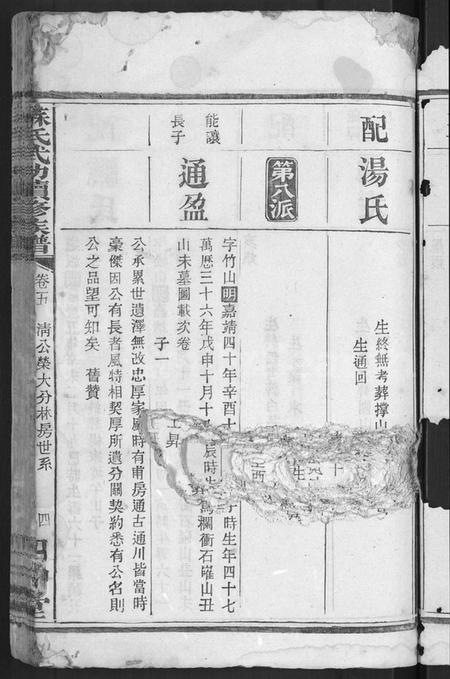 配湯氏
生終無考葬撐山
生通回
第八派
能讓
長子
通盈
字竹山明嘉靖四十年辛酉十 子時生年四十七
萬歷三十六年戊申十月十 辰時 萬欄衝石磪山丑
山未墓圖載次卷
子一
工昇
公承累世遺澤無改忠厚家風時有甫房通古通川皆當時
豪傑因公有長者風特相契厚所遺分關契約悉有公名則
公之品望可知矣 舊贊
蘇氏武功 修族譜
卷五
清公榮大分林房世系
四